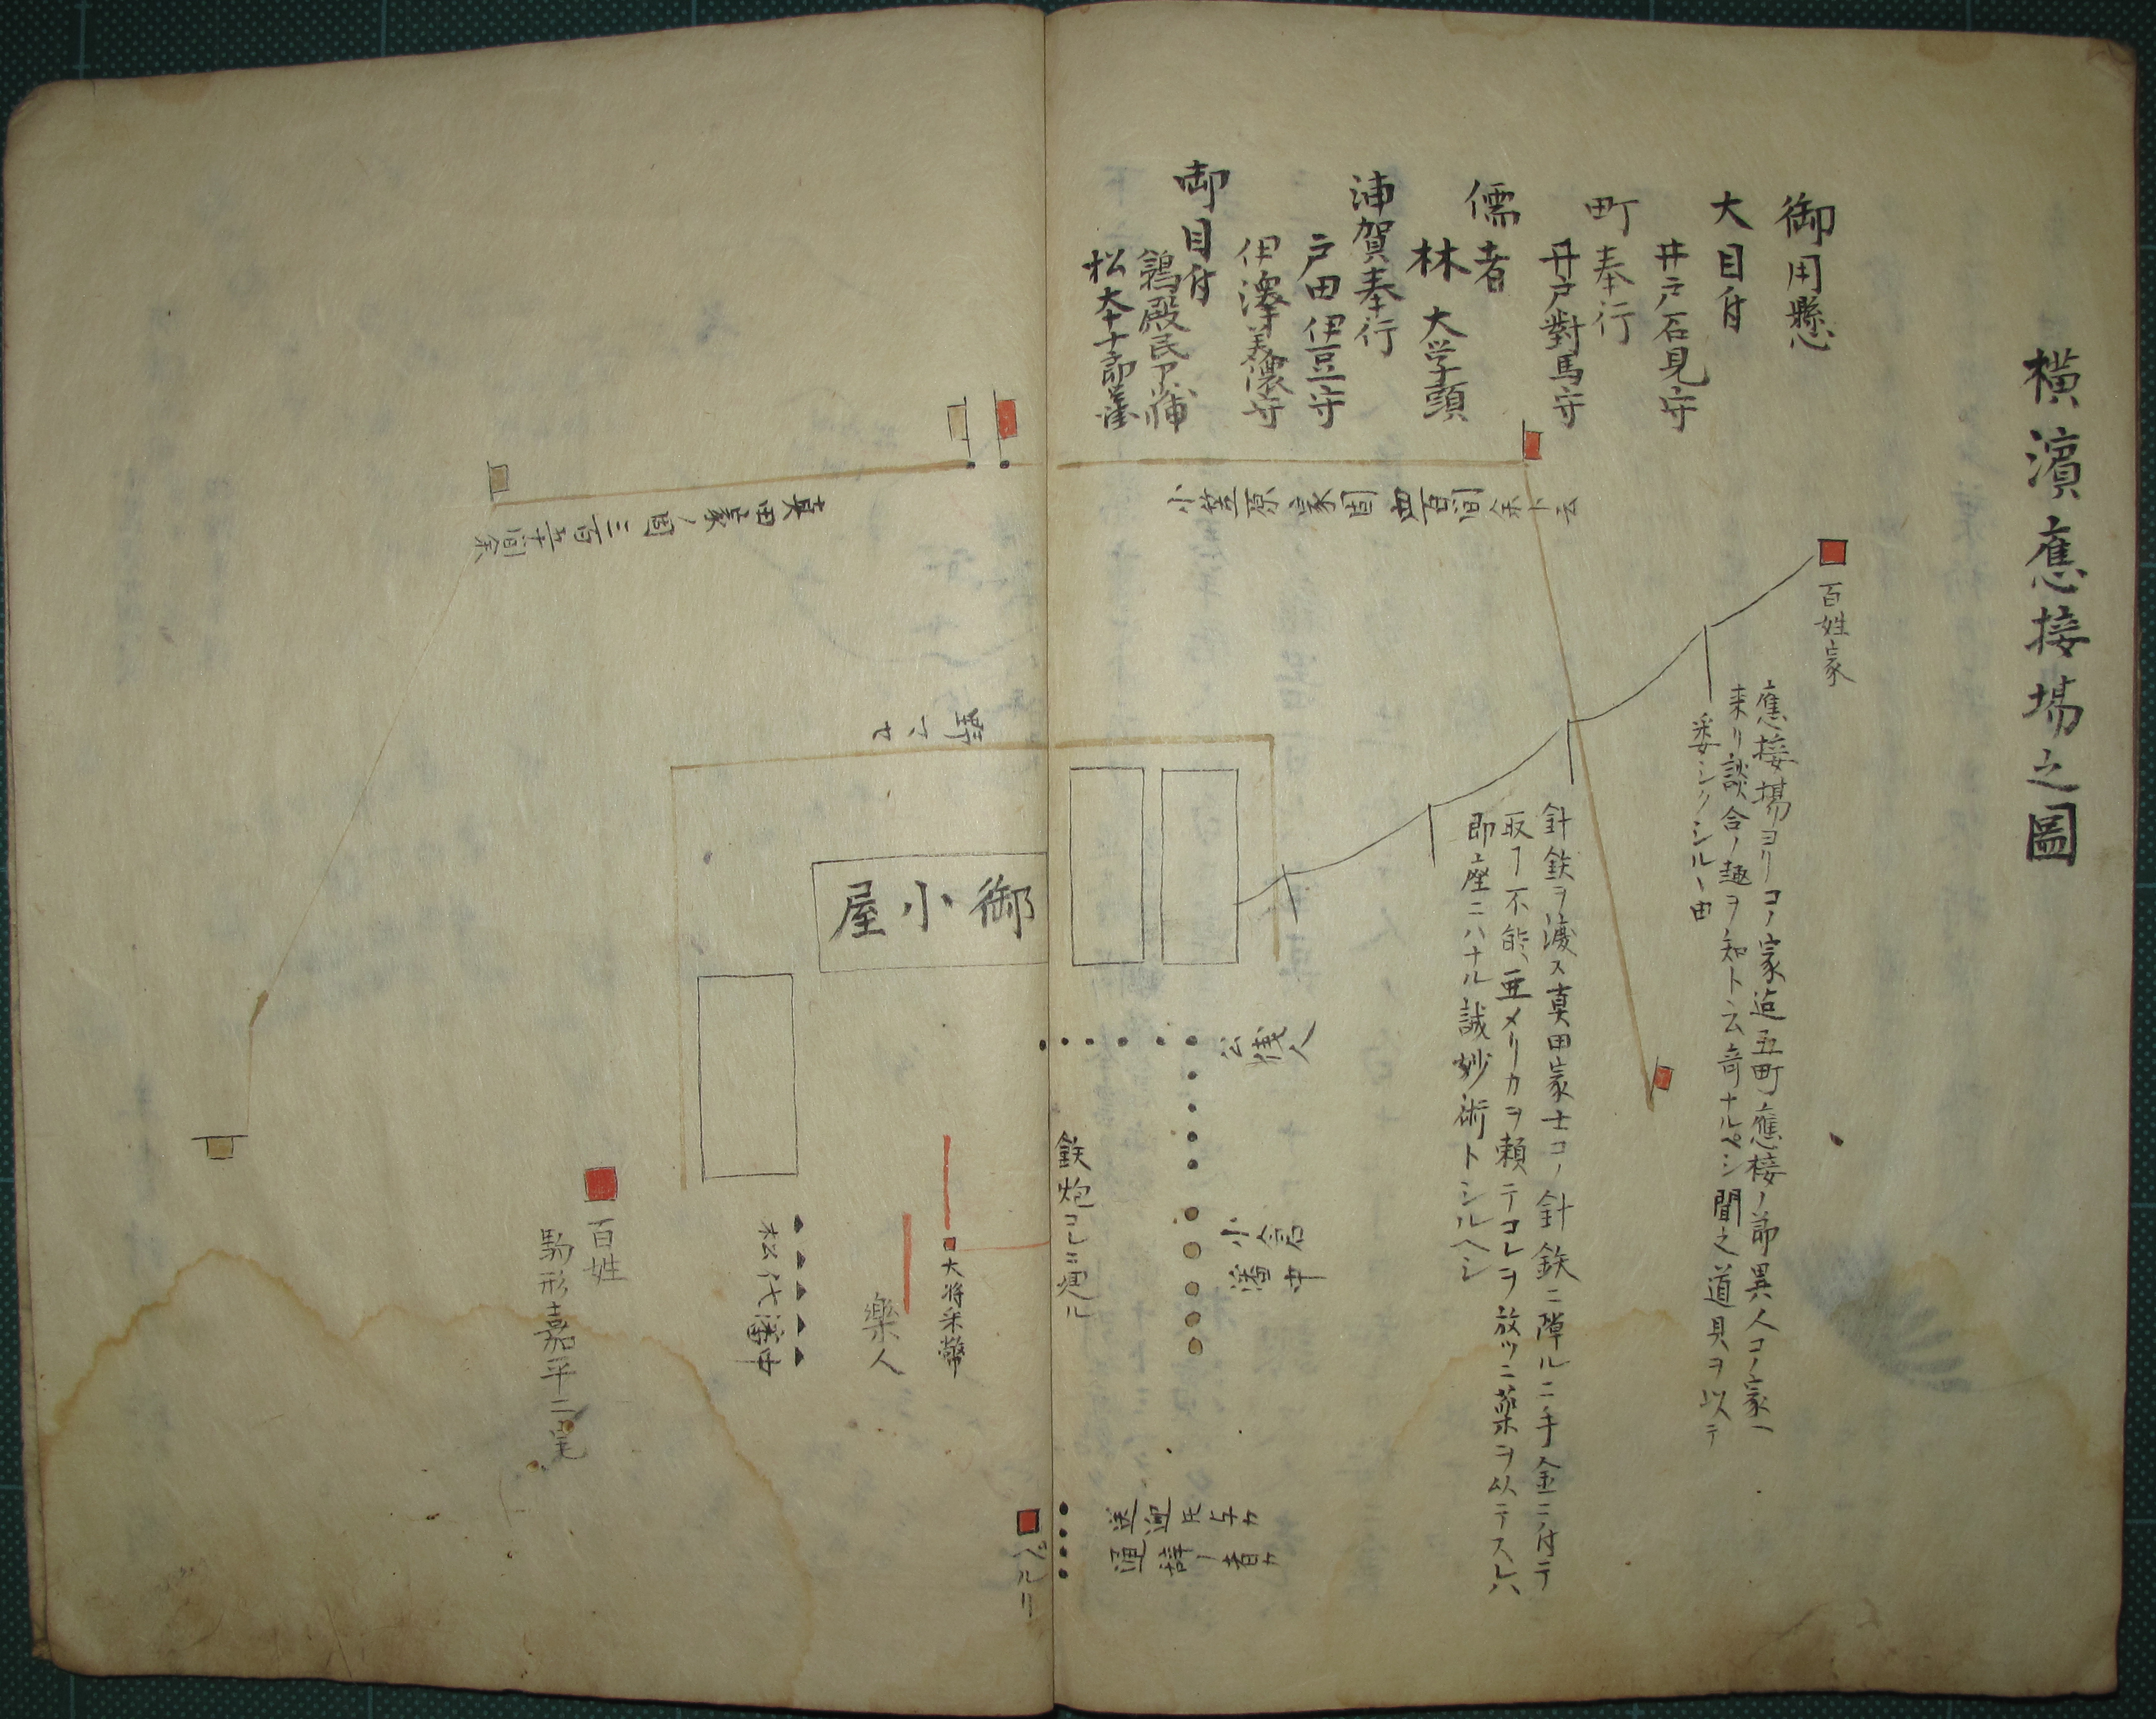 橫濱應接場之圖
御用懸
大目付
井戸石見守
町奉行
井戸對馬守
儒者
林大学頭
浦賀奉行
戸田伊豆守
伊澤美濃守
御目付
鵜殿民部少輔
松本十郎
百姓家
應接場ヨリコノ家迠五町應接ノ節異人コノ家ヘ
来リ談合ノ趣ヲ知ト云奇ナルベシ聞之道具ヲ以テ
委シクシルヽ由
針鉄ヲ渡ス真田家士コノ針鉄ニ障ルニ手金ニ付テ
取ﾃ不能亜メリカヲ頼テコレヲ放ツニ薬ヲ以テスレハ
即座ニハナル誠妙術トシルヘシ
小笠原家固四百間余ト云
真田家ノ固三百五十間余
野マセ
御小屋
公儀人
小倉藩中
鉄炮コレニ
大将采幣
樂人
松代藩中
百姓
駒形嘉平二宅
ペルリ
送迎
通辞ノ者カ